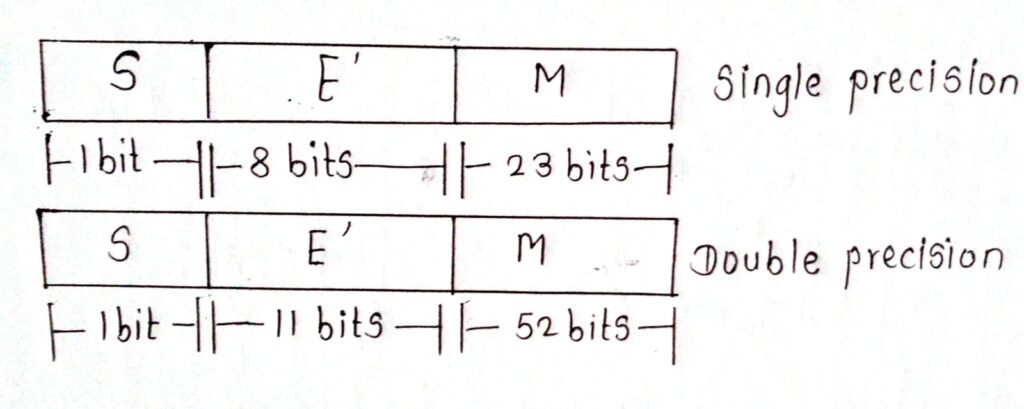 S E' M Single precision
1 bit 8 bits 23 bits
S E' M Double precision
1 bit 11 bits 52 bits